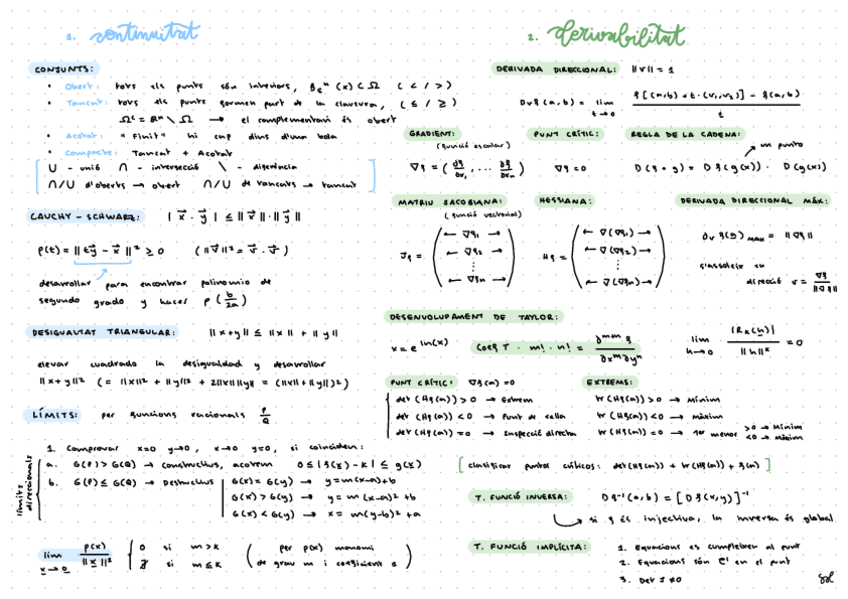 1. continuitat
CONJUNTS:
• Obert: tots els punts són interiors, Bεⁿ(x) ⊂ Ω ( < / > )
• Tancat: tots els punts formen part de la clausura, ( ≤ / ≥ )
Ωᶜ = ℝⁿ \ Ω → el complementari és obert
• Acotat: "Finit" hi cap dins d'una bola
• Compacte: Tancat + Acotat
∪ - unió ∩ - intersecció \ - diferència
∩/∪ d'oberts → obert ∩/∪ de tancats → tancat
CAUCHY-SCHWARZ: | x⃗ · y⃗ | ≤ || x⃗ || · || y⃗ ||
p(t) = || t y⃗ - x⃗ ||² ≥ 0 ( || v⃗ ||² = v⃗ · v⃗ )
desarrollar para encontrar polinomio de
segundo grado y hacer p(b/2a)
DESIGUALTAT TRIANGULAR: || x+y || ≤ || x || + || y ||
elevar cuadrado la desigualdad y desarrollar
|| x+y ||² ( = ||x||² + ||y||² + 2||x||||y|| = (||x|| + ||y||)² )
LÍMITS: per funcions racionals P/Q
límits direccionals
1. Comprovar x=0 y→0, x→0 y=0, si coinciden:
a. G(P) > G(Q) → constructius, acotem 0 ≤ | f(x) - k | ≤ g(x)
b. G(P) ≤ G(Q) → Destructius
G(x) = G(y) → y = m(x-a)+b
G(x) > G(y) → y = m(x-a)²+b
G(x) < G(y) → x = m(y-b)²+a
lim x→0 p(x)/||x||²
0 si m > k
∄ si m ≤ k
( per p(x) monomi
de grau m i coeficient 1 )
2. derivabilitat
DERIVADA DIRECCIONAL: || v || = 1
Dvf(a,b) = lim t→0 f[(a,b) + t·(v₁,v₂)] - f(a,b) / t
GRADIENT:
(funció escalar)
∇f = ( ∂f/∂x₁ , ... ∂f/∂xₙ )
PUNT CRÍTIC:
∇f = 0
REGLA DE LA CADENA:
un punto
D(f∘g) = Df(g(x)) · D(g(x))
MATRIU JACOBIANA:
(funció vectorial)
Jf = ( ← ∇f₁ →
← ∇f₂ →
⋮
← ∇fₙ → )
HESSIANA:
Hf = ( ← ∇(∇f₁) →
← ∇(∇f₂) →
⋮
← ∇(∇fₙ) → )
DERIVADA DIRECCIONAL MÀX:
Dvf(a) MAX = || ∇f ||
s'assoleix en
direcció v = ∇f/||∇f||
DESENVOLUPAMENT DE TAYLOR:
x = e^ln(x) Coef T · m! · n! = ∂ᵐ⁺ⁿ f / ∂xᵐ∂yⁿ lim h→0 |Rₖ(h)| / ||h||ᵏ = 0
PUNT CRÍTIC: ∇f(a) = 0
det(Hf(a)) > 0 → Extrem
det(Hf(a)) < 0 → Punt de sella
det(Hf(a)) = 0 → Inspecció directa
EXTREMS:
tr(Hf(a)) > 0 → Mínim
tr(Hf(a)) < 0 → Màxim
tr(Hf(a)) = 0 → 1er menor >0 → Mínim
<0 → Màxim
[ clasificar puntos críticos: det(Hf(a)) + tr(Hf(a)) + f(a) ]
T. FUNCIÓ INVERSA: Df⁻¹(a,b) = [Df(x,y)]⁻¹
si f és injectiva, la inversa és global
T. FUNCIÓ IMPLÍCITA:
1. Equacions es cumpleixen al punt
2. Equacions són C¹ en el punt
3. Det J ≠ 0